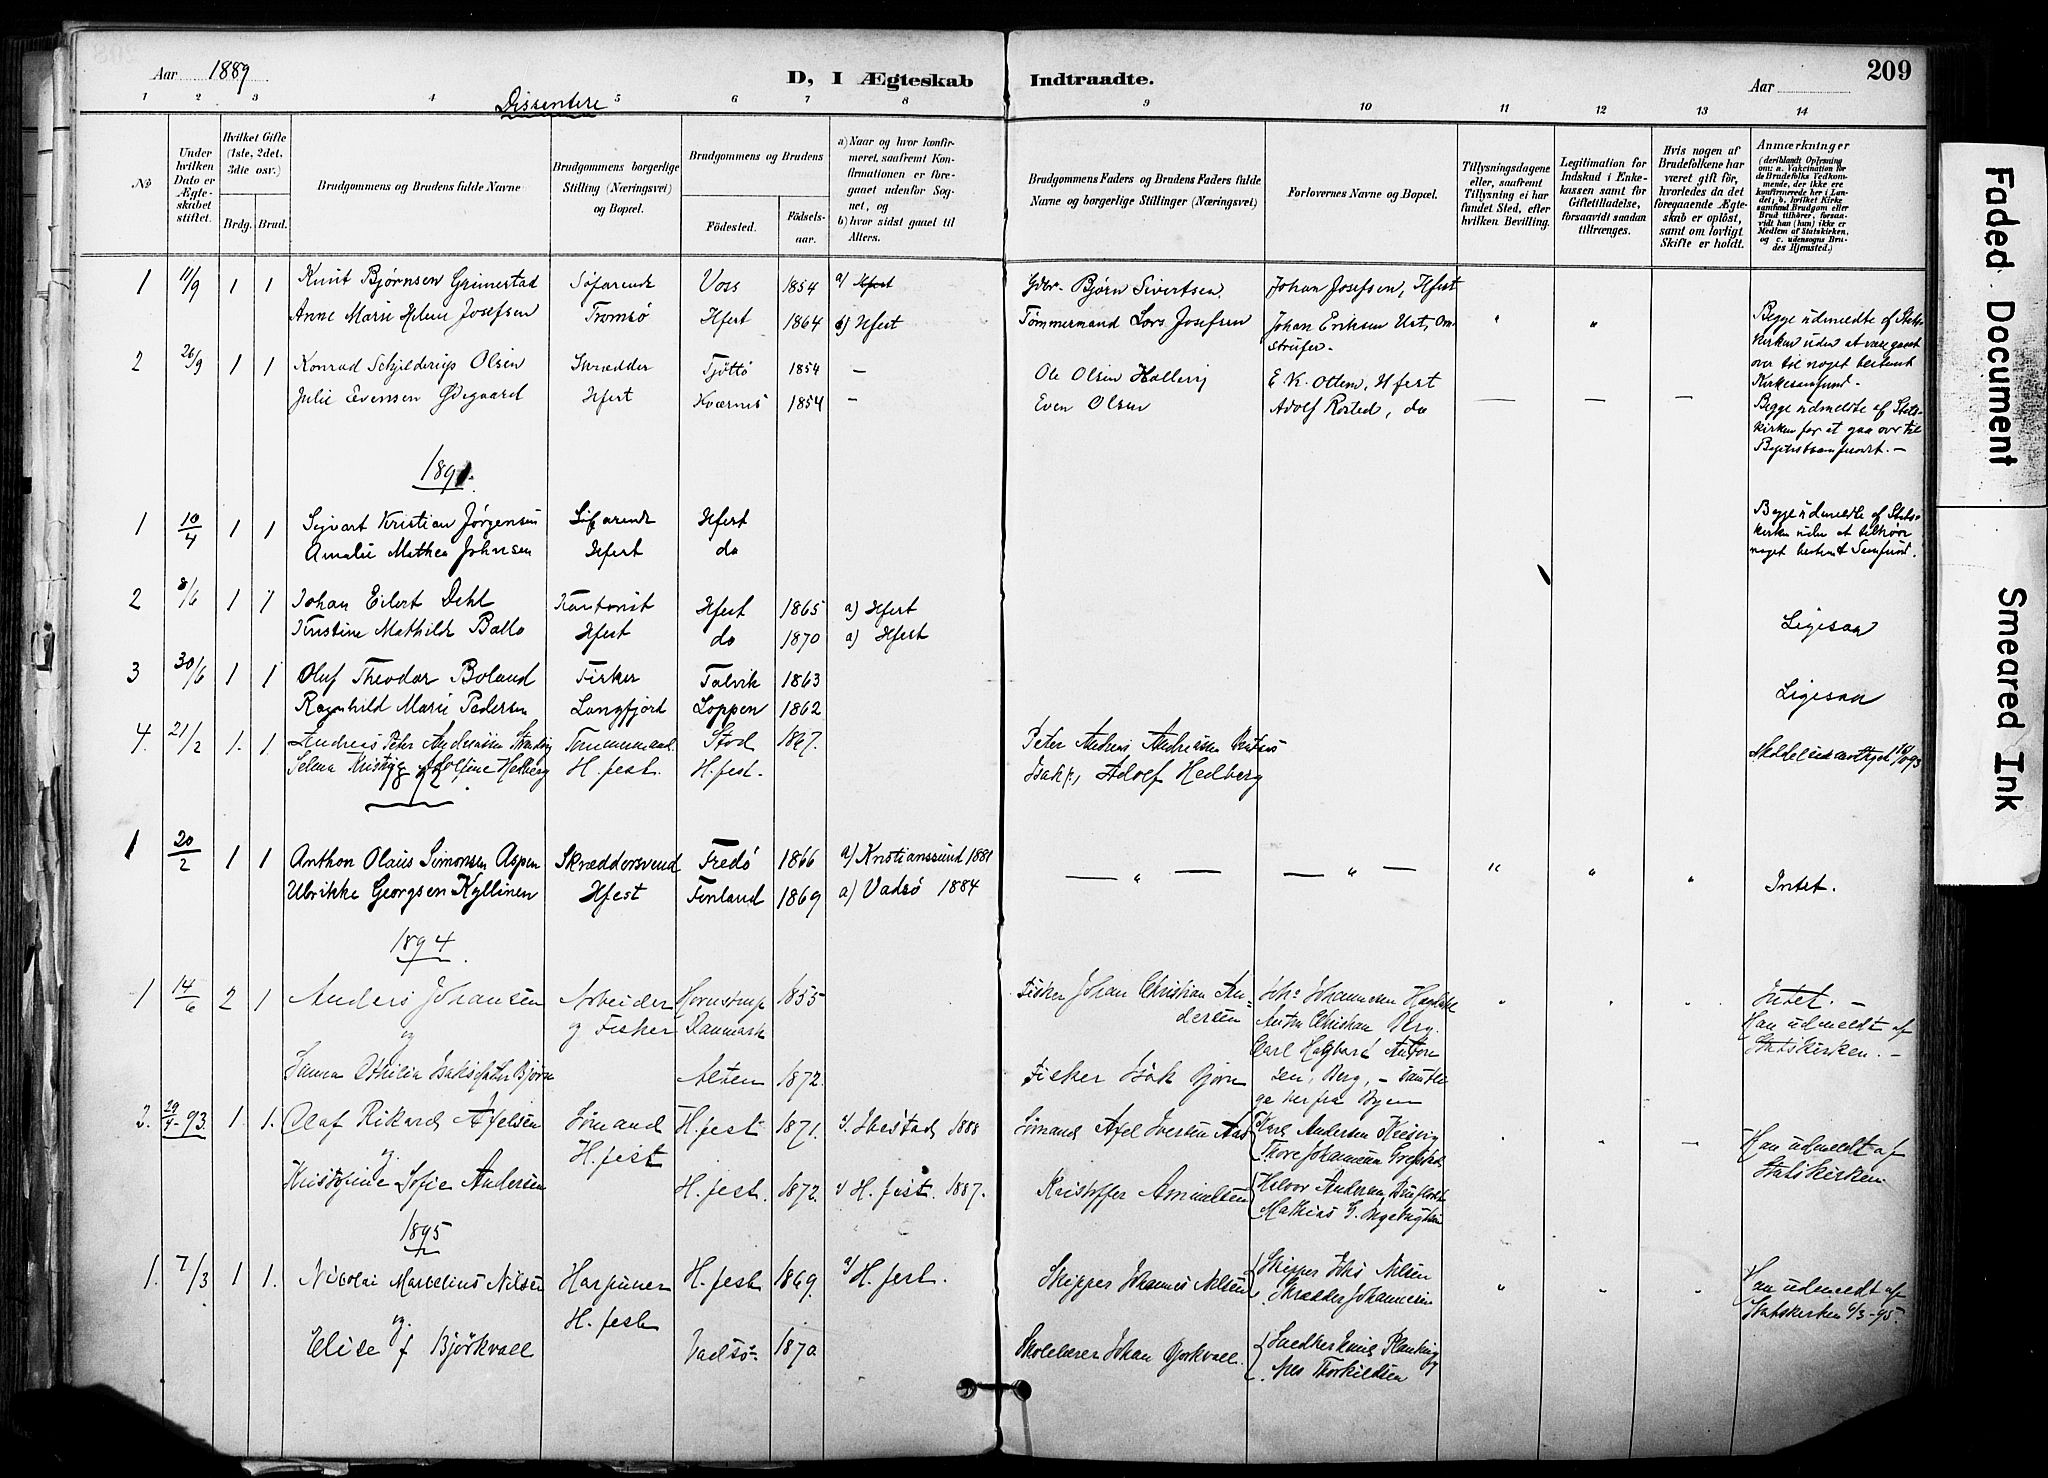 Aar 1889
D, I Ægteskab Indtraadte.
Aar
209
Dissentere
1 2 3 4 5 6 7 8 9 10 11 12 13 14
No
Under hvilken Dato er Ægteskabet stiftet.
Hvilket Gifte (1ste, 2det, 3die osv.)
Brdg. Brud.
Brudgommens og Brudens fulde Navne
Brudgommens borgerlige Stilling (Næringsvei) og Bopæl.
Brudgommens og Brudens
Fødested. Fødselsaar.
a) Naar og hvor konfirmeret, saafremt Konfirmationen er foregaaet udenfor Sognet, og
b) hvor sidst gaaet til Alters.
Brudgommens Faders og Brudens Faders fulde Navne og borgerlige Stillinger (Næringsvei)
Forlovernes Navne og Bopæl.
Tillysningsdagene eller, saafremt Tillysning ei har fundet Sted, efter hvilken Bevilling.
Legitimation for Indskud i Enkekassen samt for Giftetilladelse, forsaavidt saadan tiltrænges.
Hvis nogen af Brudefolkene har været gift før, hvorledes da det foregaaende Ægteskab er opløst, samt om lovligt Skifte er holdt.
Anmærkninger
1 11/9 1 1 Knut Bjørnsen Grimestad Søfarende Voss 1854 a) Hfest Gdbr. Bjørn Sivertsen Johan Josefsen, Hfest
Anne Marie Helene Josefsen Tromsø Hfest 1864 b) Hfest Tømmermand Lars Josefsen Johan Eriksen
Begge udmeldte af Stats-
kirken uden at være gaaet
over til noget bestemt
Kirkesamfund.
2 26/9 1 1 Konrad Schjelderup Olsen Skrædder Tjøttø 1854 — Ole Olsen E. K. Ottem, Hfest
Julie Evensen Ødegaard Hfest Kværnes 1854 — Even Olsen Adolf Rosted, do
Begge udmeldte af Stats-
kirken for at gaa over til
Baptistsamfundet. —
1891.
1 10/4 1 1 Sigvart Kristian Jørgensen Søfarende Hfest
Amalie Mathea Johnsen Hfest do
Begge udmeldte af Stats-
kirken uden at tilhøre
noget bestemt Samfund.
2 8/6 1 1 Johan Eilert Dehl Kontorist Hfest 1865 a) Hfest
Kristine Mathilde Ballo Hfest do 1870 a) Hfest Ligesaa
3 30/6 1 1 Oluf Theodor Boland Fisker Talvik 1863
Ragnhild Marie Pedersen Langfjord Loppen 1862 Ligesaa
4. 21/2 1. 1. Andreas Peter Andreassen Tømmermand Stod 1867. Peter Andreas Andreassen
Selma Adolfine Hedberg H.fest. H.fest. Isak, Adolf Hedberg
1 20/2 1 1 Anthon Olaus Simonsen Aspen Skræddersvend Fredø 1866 a) Kristianssund 1881
Ulrikke Georgsen Kyllinen Hfest Finland 1869 a) Vadsø 1884 Intet.
1894
1 14/6 2 1 Anders Johansen Arbeider 1855 Fisker Johan Christian An-
og og Fisker Danmark dersen
Intet. —
Han udmeldt af
Statskirken. —
Sanna Othilia Isaksdatter Bjørn Alten 1872. Fisker Isak Bjørn
2. 29/4-93. 1. 1. Olaf Rikard Axelsen Sømand H.fest 1871. a) Ibestad 1888 Sømand Axel Iversen Karl Andersen
og H.fest Thore Johannesen
Kristofine Sofie Andersen H.fest. 1872. a) H.fest. 1887. Kristoffer
Mathias G. Ingebrigtsen
Han udmeldt af
Statskirken.
1895
1. 7/3 1 1. Nicolai Marcelius Nilsen Harpuner H.fest 1869. a) H.fest. Skipper Johannes Nilsen Skipper Johs Nilsen
og H.fest Skrædder Johannesen
Han udmeldt af
Statskirken 6/3-95.
Elise f Bjørkvall Vadsø 1870 Skolelærer Johan Bjørkvall. Snedker
Thorkildsen
Faded Document
Smeared Ink